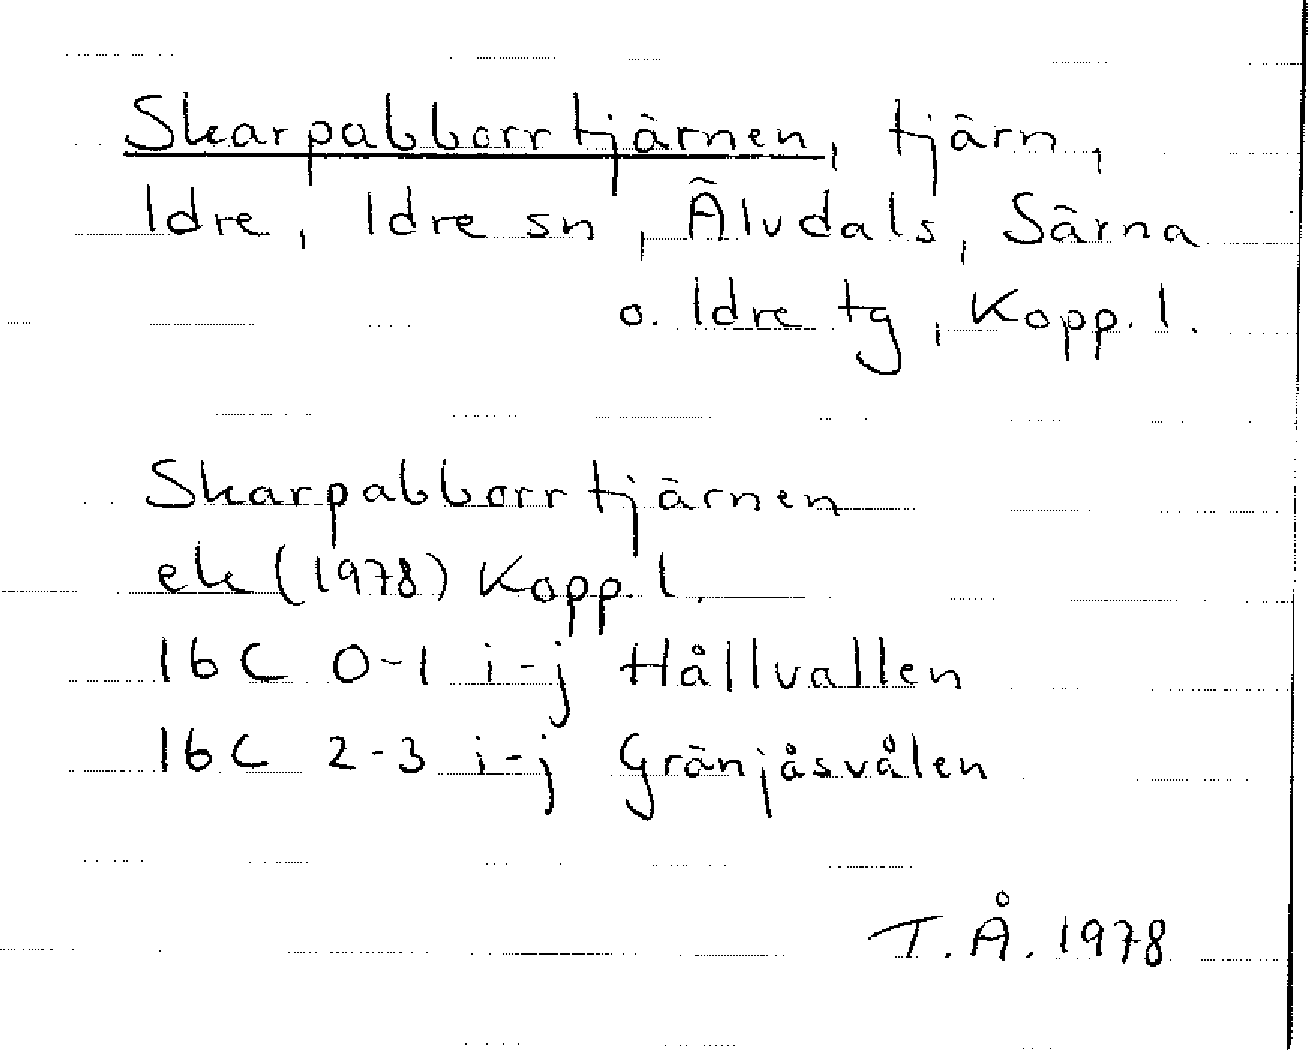 Skarpabborrtjärnen, tjärn,
Idre, Idre sn, Älvdals, Särna
o. Idre tg, Kopp. l.
Skarpabborrtjärnen
ek (1978) Kopp. l.
16C 0-1 i-j Hållvallen
16C 2-3 i-j Gränjåsvålen
T. Å. 1978